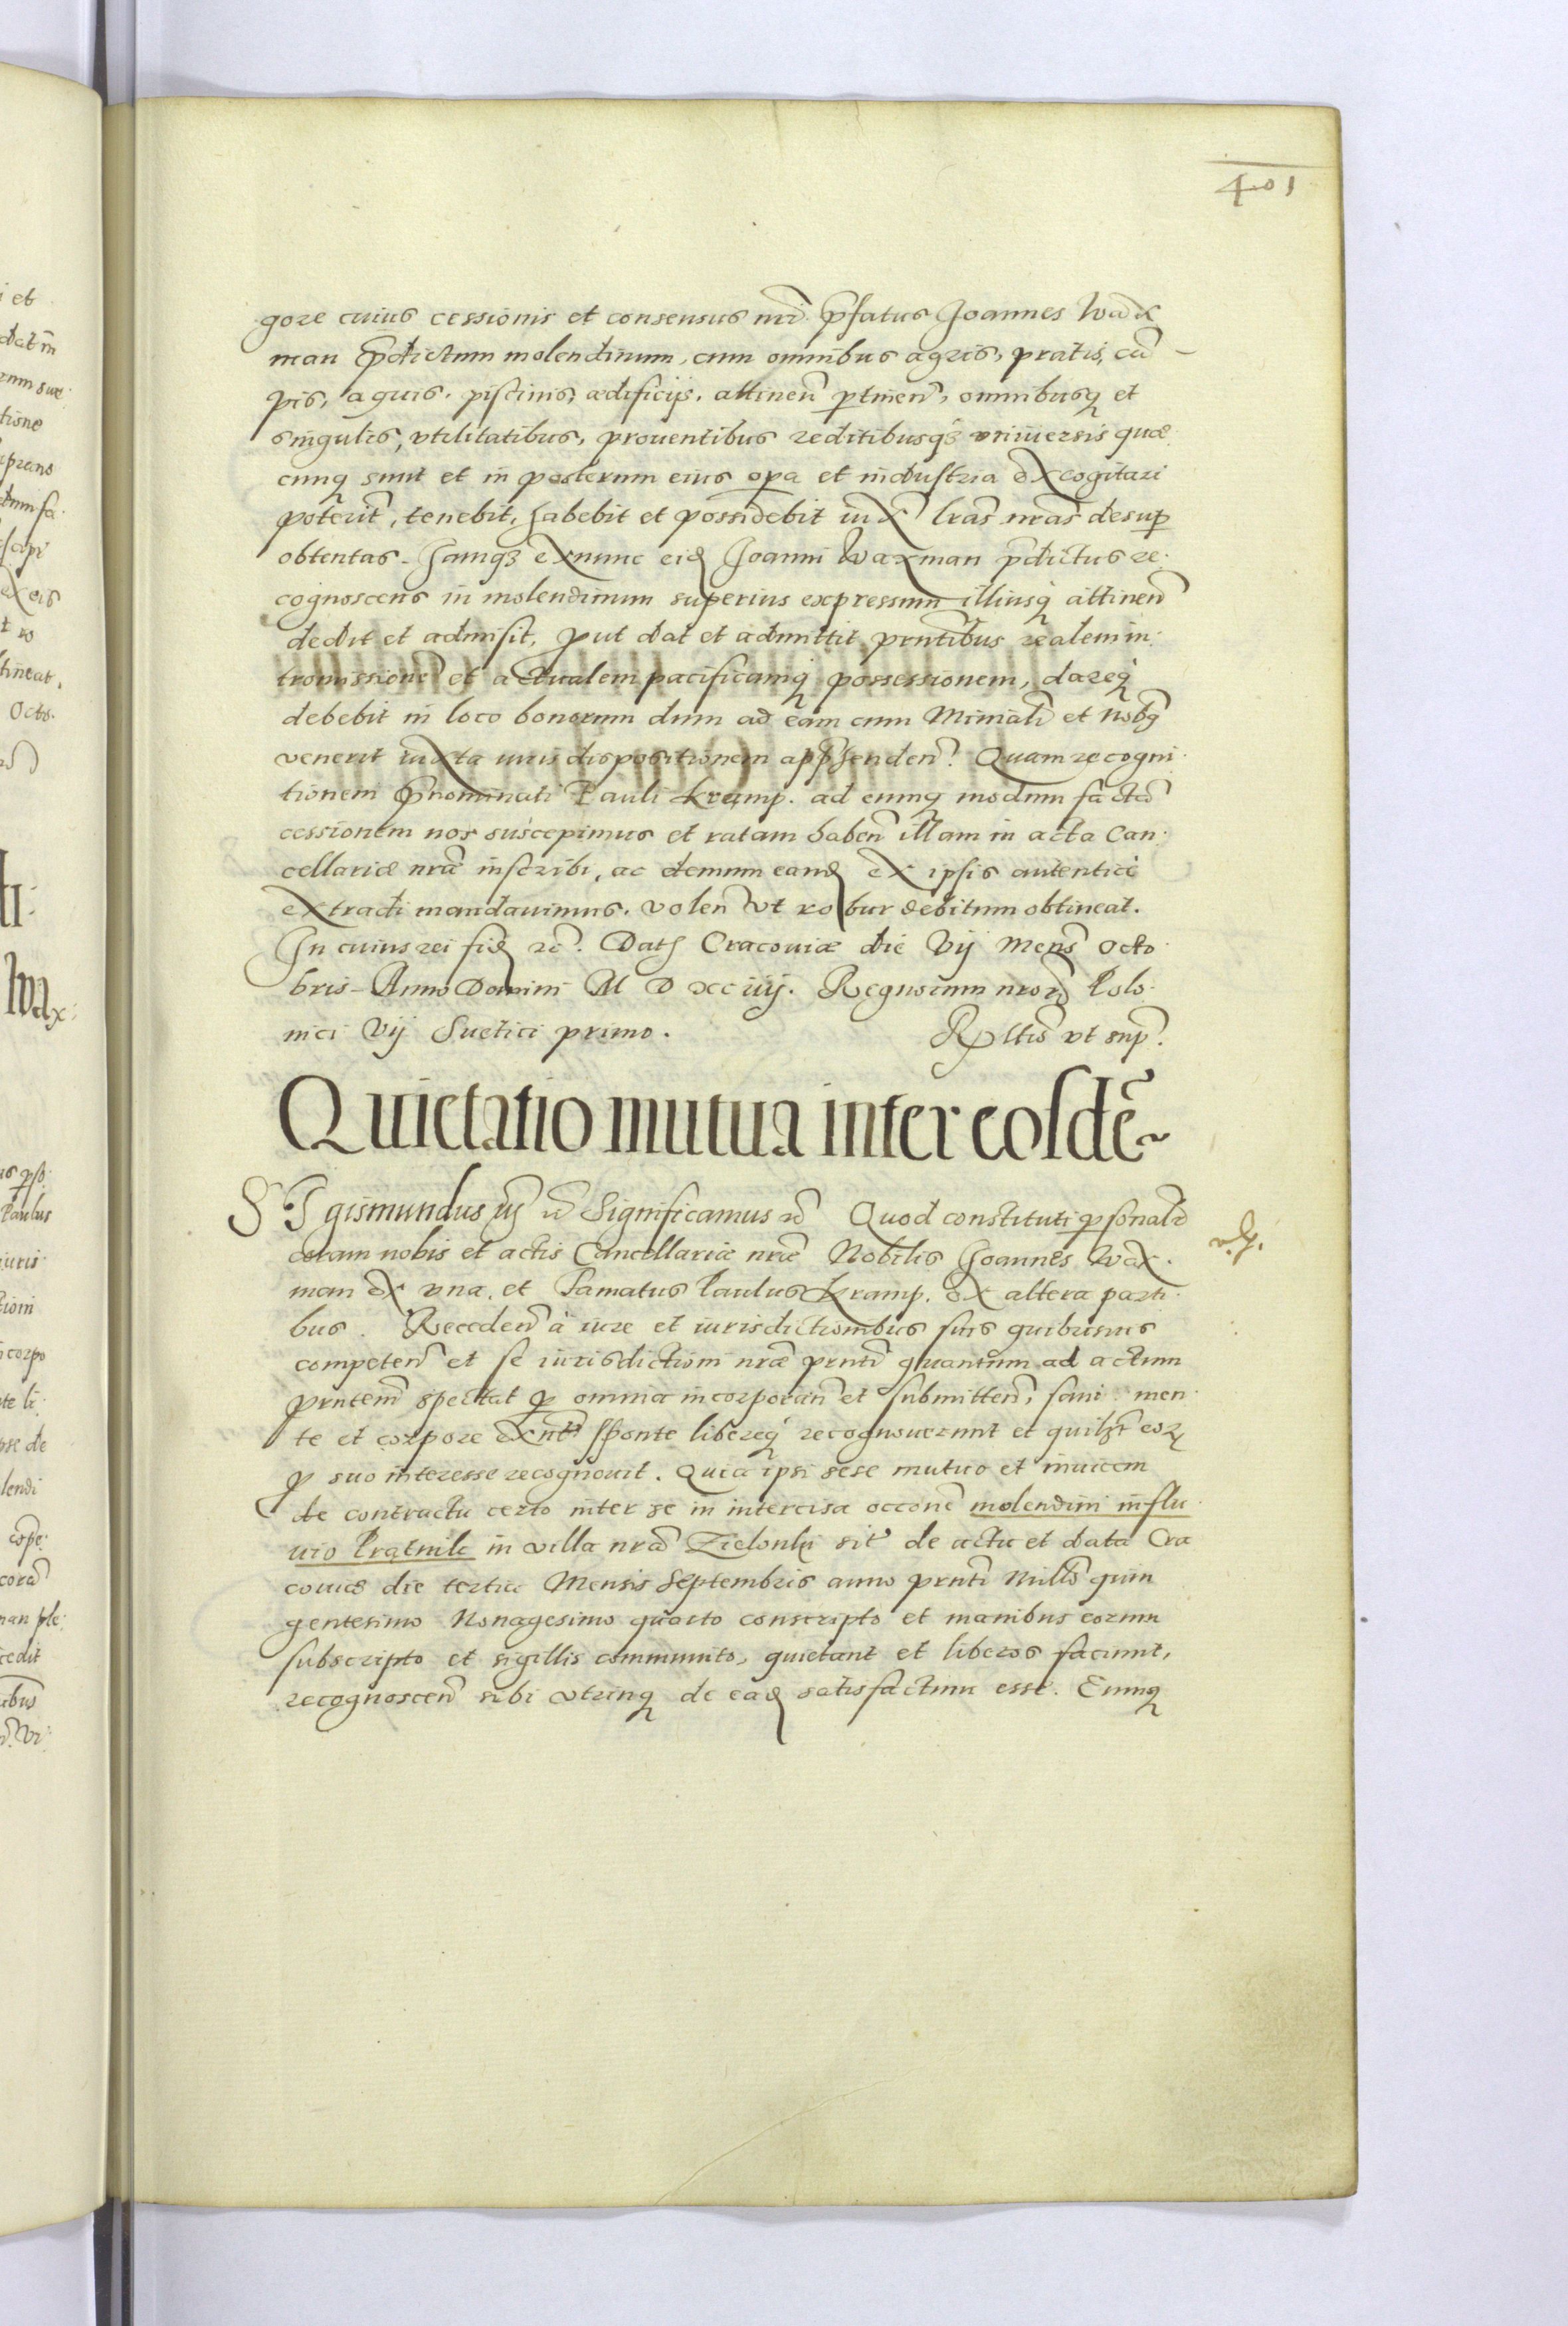 401
gore cuius cessionis et consensus nrĩ p̃fatus Joannes Wax
man p̃dictum molendinum, cum omnibus agris, pratis, cã
pis, aquis, piscinis, ædificijs, attineñ ptineñ, omnibusq et
singulis, vtilitatibus, prouentibus reditibusq; vniuersis quæ
cunq sunt et in posterum eius opa et industria excogitari
poterit, tenebit, habebit et possidebit iux̃ lras̃ nras̃ desup
obtentas. Jamq; exnunc eid Joanni Waxman p̃dictus re
cognoscens in molendinum superius expressum illiusq attineñ
dedit et admisit, put dat et admittit prñtibus realem in
tromissionẽ et actualem pacificamq possessionem, dareq
debebit in loco bonorum dum ad eam cum Miniali et Nobq
venerit iuxta iuris dispositionem app̃henden̄. Quam recogni
tionem p̃nominati Pauli Kramp. ad eumq modum factã
cessionem nos suscepimus et ratam habeñ illam in acta Can
cellariæ nræ inscribi, ac demum eand ex ipsis autentice
extradi mandauimus. volen̄ vt robur debitum obtineat.
In cuius rei fid etc̃. Dat Cracouiæ die Vij Mens̃ Octo
bris Anno Domini M D xciiij. Regnorum nrorũ Polo
nici Vij Suetici primo. Rltio vt sup̃.
Quietatio mutua inter eosdẽ
Sigismundus iij etc̃ Significamus etc̃ Quod constituti psonalr̃
coram nobis et actis Cancellariæ nræ Nobilis Joannes Wax
man ex vna, et Famatus Paulus Kramp. ex altera parti
bus. Recedeñ à iure et iurisdictionibus suis quibusuis
competeñ et se iurisdictioni nræ prñti quantum ad actum
prñtem spectat p omnia incorporañ et submitteñ, sani men
te et corpore exñtes sponte libereq recognouerunt et quilbt eor
p suo interesse recognouit. Quia ipsi sese mutuo et inuicem
de contractu certo inter se in intercisa occõne molendini in flu
uio Prątnik in villa nrã Zielonki sit̃ de actu et data Cra
couiæ die tertia Mensis Septembris anno prñti Millõ quin
gentesimo Nonagesimo quarto conscripto et manibus eorum
subscripto et sigillis communito, quietant et liberos faciunt,
recognosceñ sibi vtrinq de ead satisfactum esse. Eumq